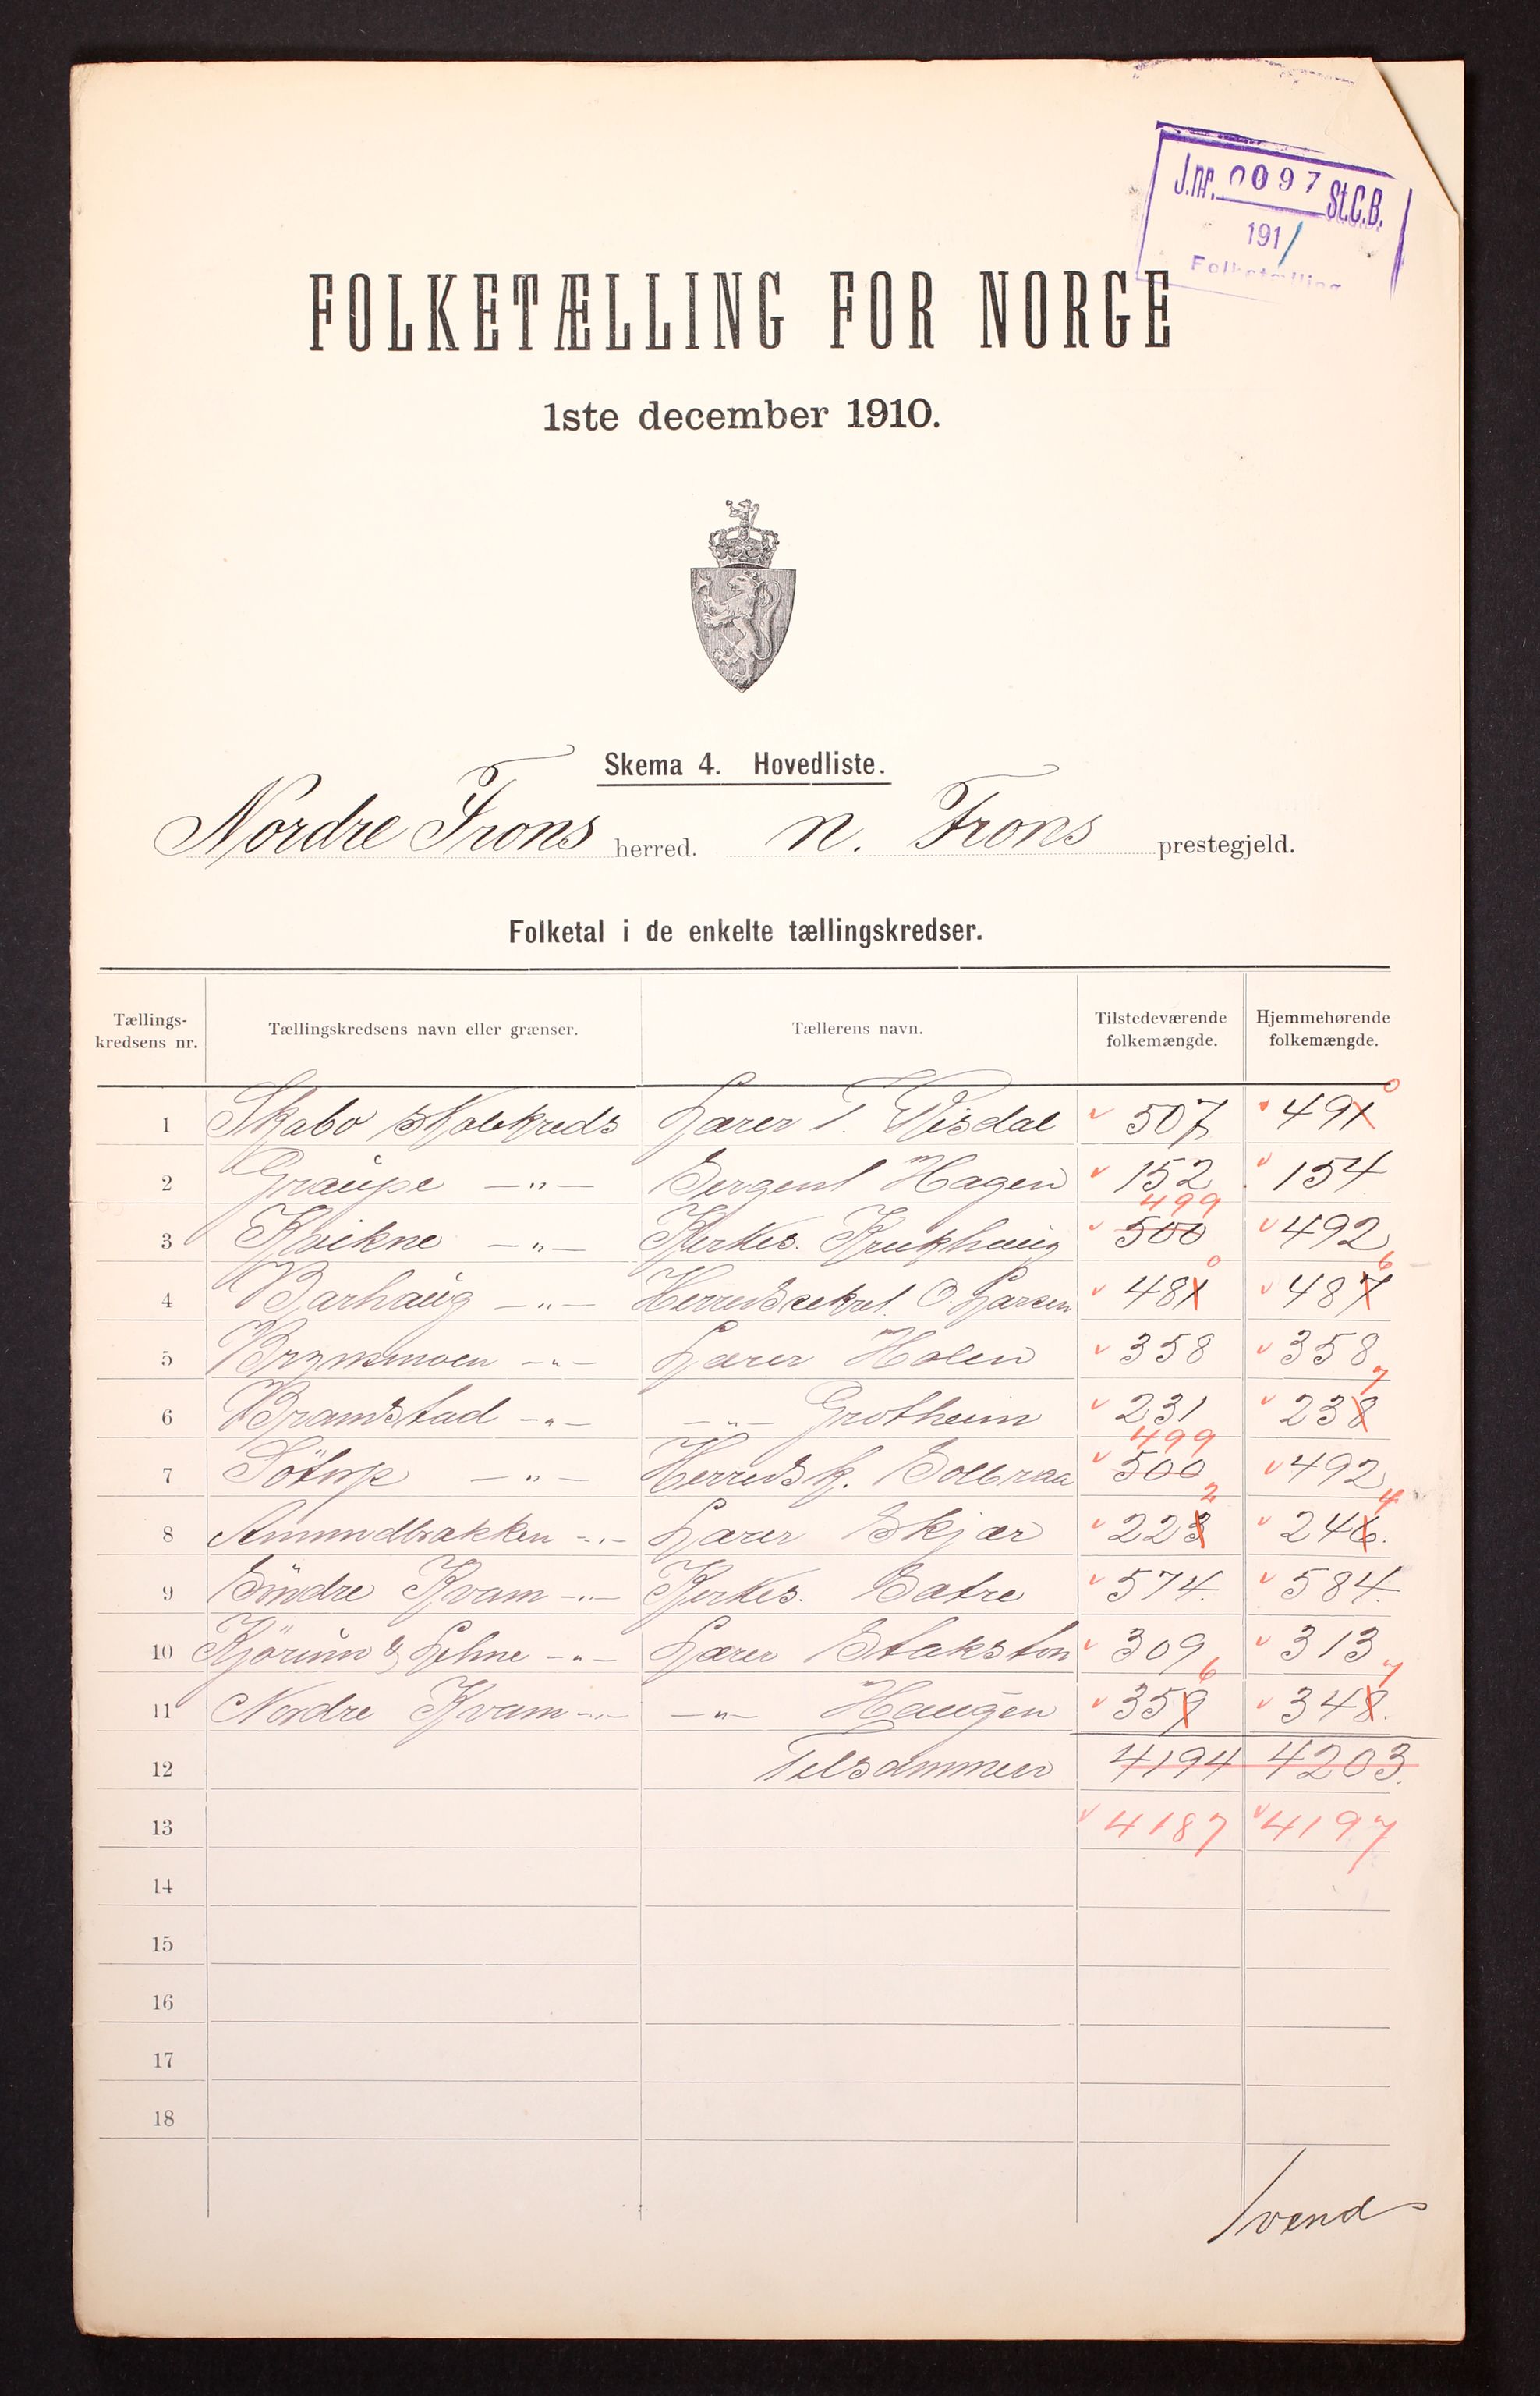 J.nr. 0097 St.C.B.
1911
Folketælling
FOLKETÆLLING FOR NORGE
1ste december 1910.
Skema 4. Hovedliste.
Nordre Frons herred. N. Frons prestegjeld.
Folketal i de enkelte tællingskredser.
Tællings-kredsens nr. Tællingskredsens navn eller grænser. Tællerens navn. Tilstedeværende folkemængde. Hjemmehørende folkemængde.
1 Skabo skolekreds Lærer T. Risdal 507 491 0
2 Graupe —„— Sergent Hagen 152 154
3 Kvikne —„— Kirkes. Krukhaug 500 499 492
4 Barhaug —„— Herredssekret. O. Larsen 481 0 487 6
5 Brynsmoen —„— Lærer Holen 358 358
6 Bramstad —„— —„— Grotheim 231 238 7
7 Södorp —„— Herredsk. Solbraa 500 499 492
8 Amundbakken —„— Lærer Skjær 223 2 246. 4
9 Söndre Kvam —„— Kirkes. Sætre 574. 584.
10 Kjörum & —„— Lærer Stakston 309 313
11 Nordre Kvam —„— —„— Haugen 359 6 348. 7
12 Tilsammen 4194 4203.
13 4187 4197
14
15
16
17
18
vend